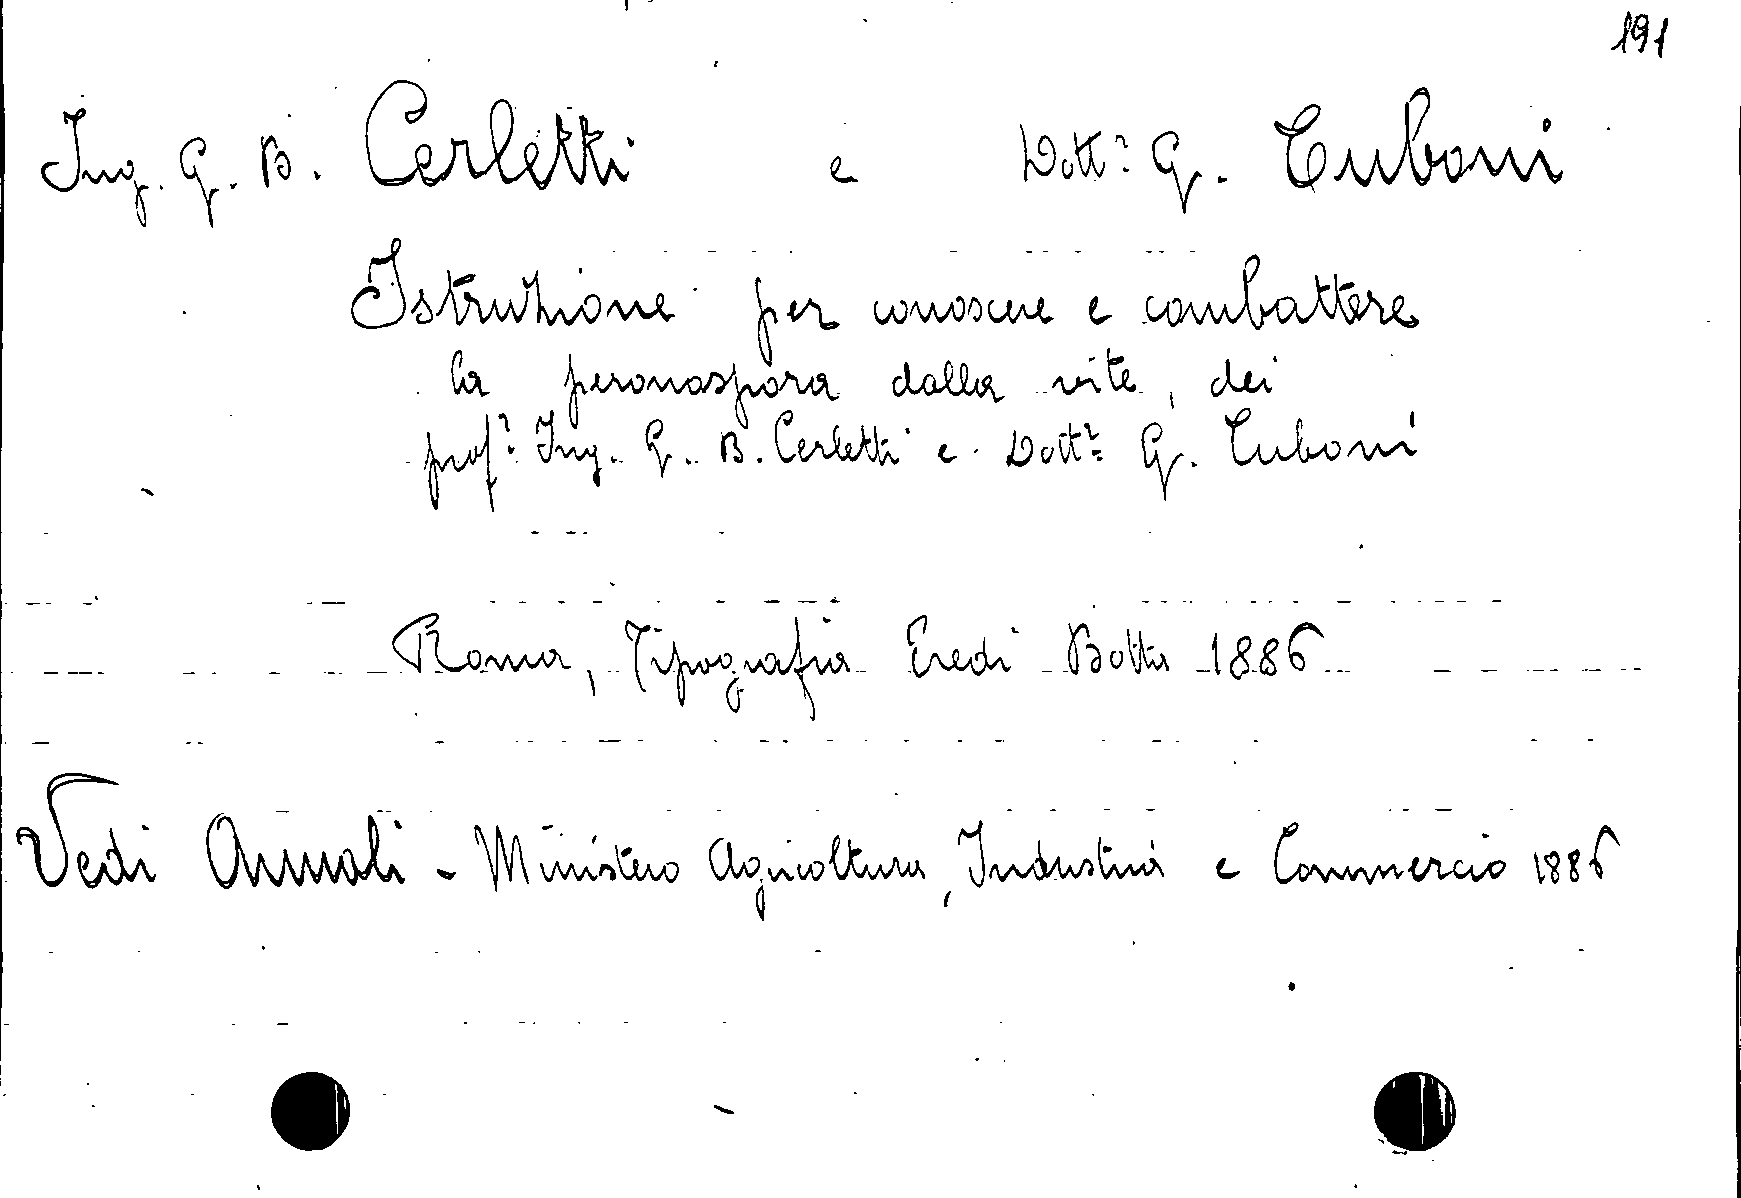 191
Ing. G. B. Cerletti e Dott.r G. Cuboni
Istruzione per conoscere e combattere
la peronospora della vite, dei
prof.r Ing. G. B. Cerletti e Dott.r G. Cuboni
Roma, Tipografia Eredi Botta 1886
Vedi Annali - Ministero Agricoltura, Industria e Commercio 1886